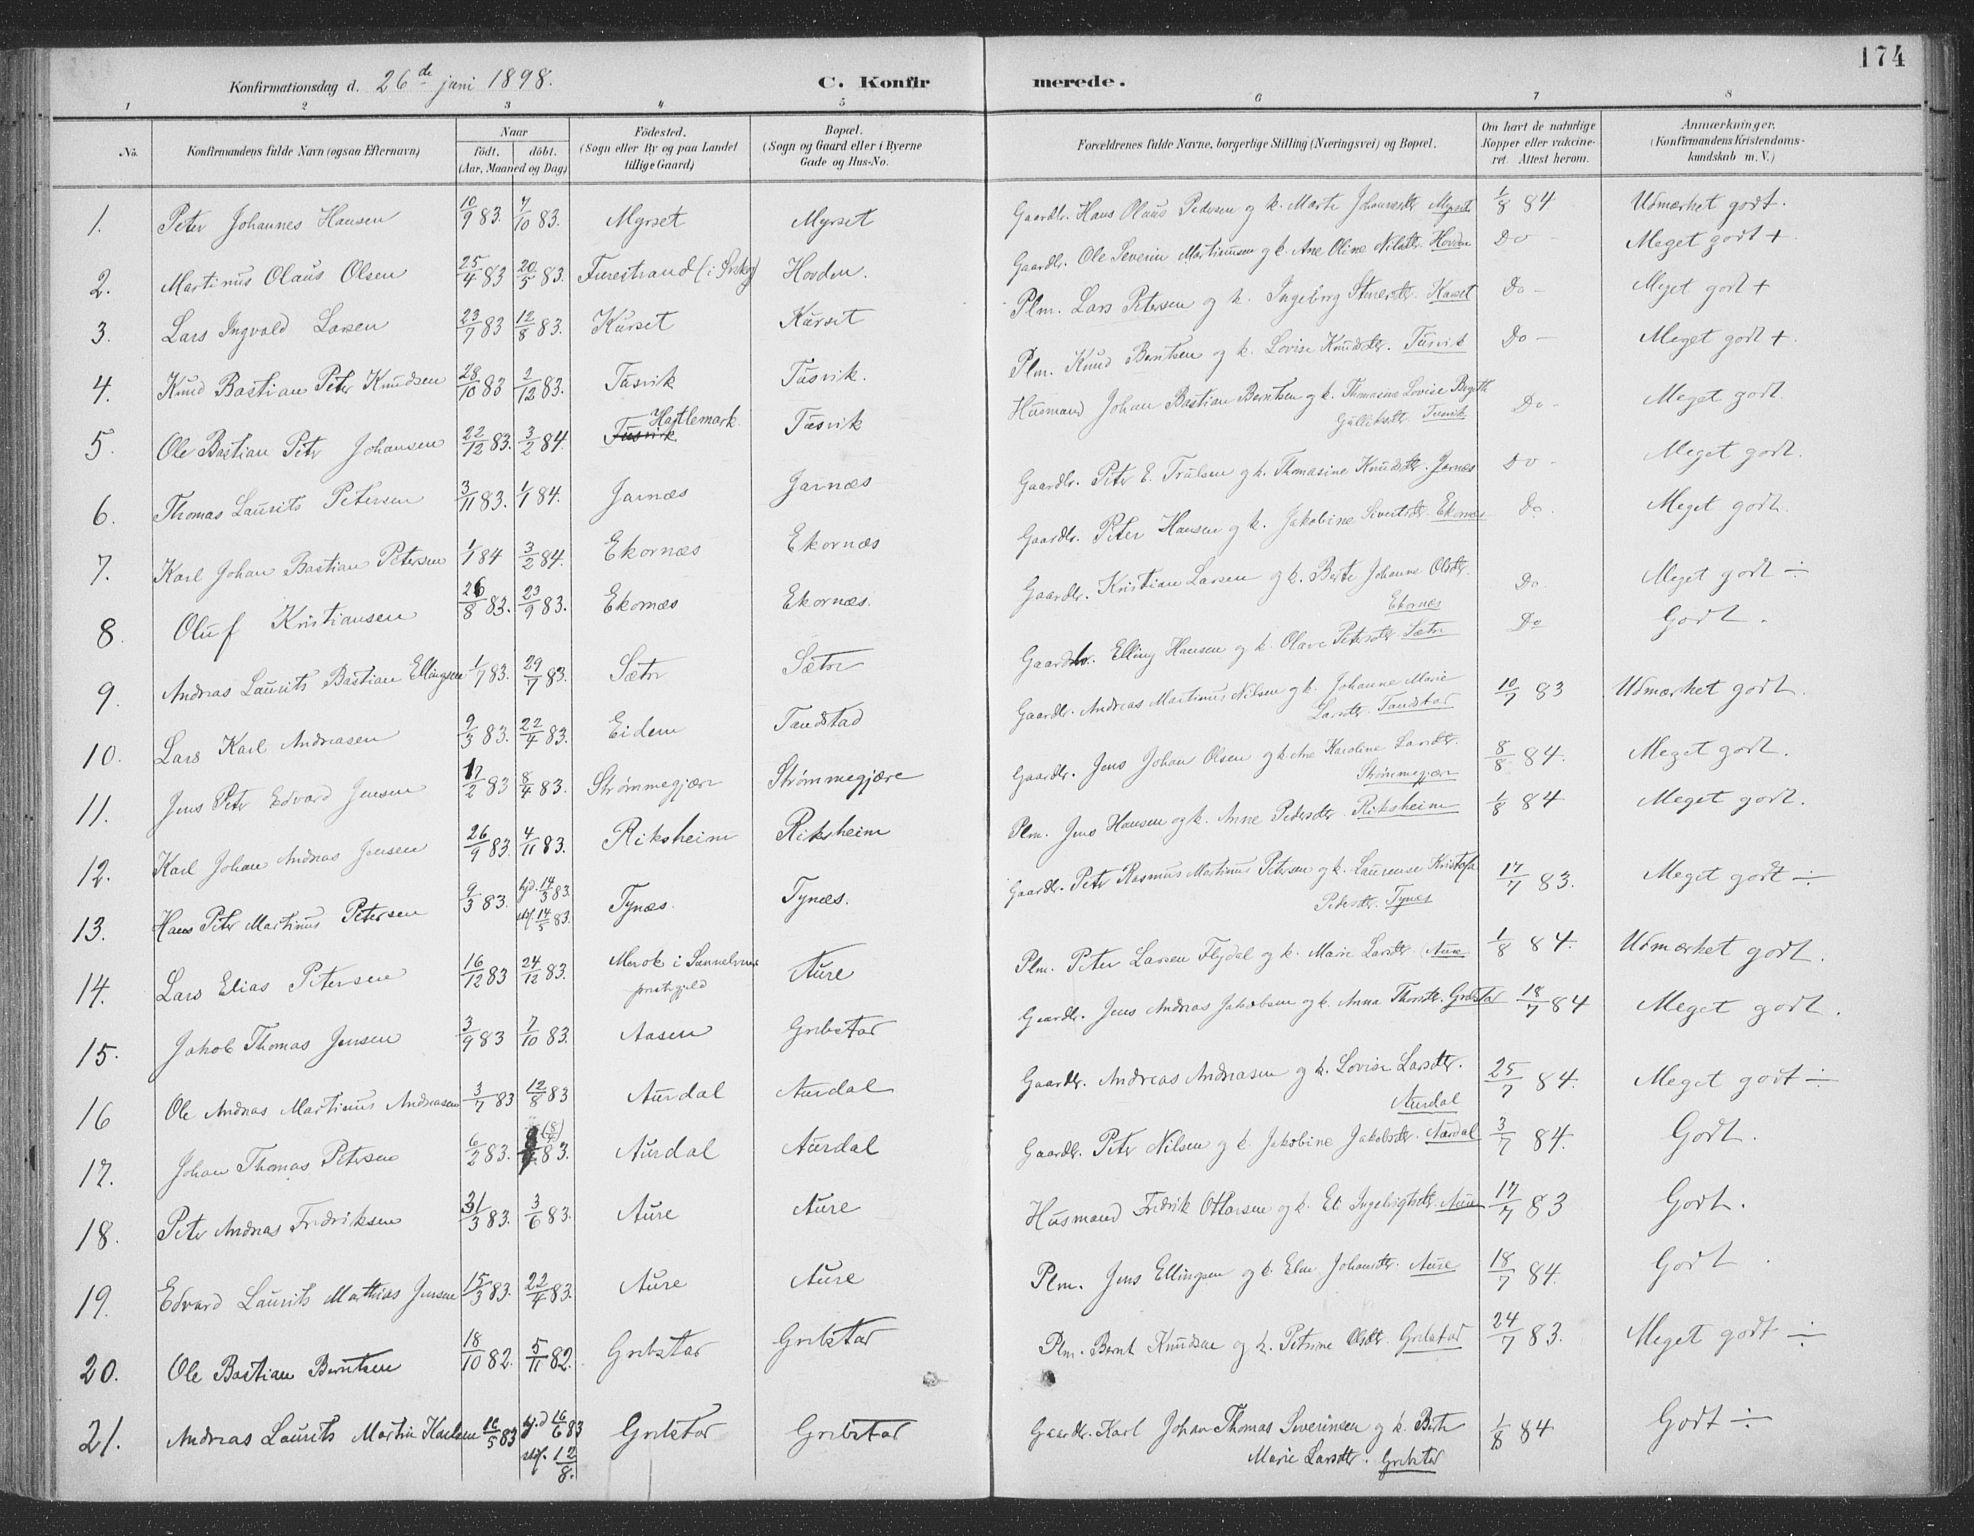 174
Konfirmationsdag d. 26de juni 1898. C. Konfirmerede.
1 2 3 4 5 6 7 8
No. Konfirmandens fulde Navn (ogsaa Efternavn) Naar födt, döbt. (Aar, Maaned og Dag) Födested. (Sogn eller By og paa Landet tillige Gaard) Bopæl. (Sogn og Gaard eller i Byerne Gade og Hus-No. Forældrenes fulde Navne, borgerlige Stilling (Næringsvei) og Bopæl. Om havt de naturlige Kopper eller vakcineret. Attest herom. Anmærkninger. (Konfirmandens Kristendomskundskab m. V.)
1. Peter Johannes Hansen 10/9 83. 7/10 83. Myrset Myrset Gaardbr. Hans Olaus Pedersen og k. Marte Johannesdtr. Myrset 1/8 84 Udmærket godt.
2. Martinus Olaus Olsen 25/4 83 20/5 83. Furestrand Hovden. Gaardbr. Ole Severin Martinussen og k. Ane Oline Nilsdtr. Hovden Do - Meget godt +
3. Lars Ingvald Larsen 23/7 83 12/8 83. Kurset Kurset Plm. Lars Petersen og k. Ingeborg Kurset Do - Meget godt +
4. Knud Bastian Peter Knudsen 28/10 83 2/12 83. Tusvik Tusvik. Plm. Knud Berntsen og k. Lovise Knudsdtr. Tusvik Do - Meget godt +.
5. Ole Bastian Petr Johansen 22/12 83. 3/2 84. Tusvik Hatlemark. Tusvik Husmand Johan Bastian Berntsen og k. Thomasine Lovise Gulliksdtr. Tusvik Do - Meget godt.
6. Thomas Laurits Petersen 3/11 83. 1/1 84. Jarnæs Jarnæs Gaardbr. Peter E. Trulsen og k. Thomasine Knudsdtr. Jarnæs Do - Meget godt.
7. Karl Johan Bastian Petersen 1/1 84 3/2 84. Ekornæs Ekornæs Gaardbr. Peter Hansen og k. Jakobine Sivertsdtr. Ekornæs Do. Meget godt.
8. Oluf Kristiansen 26/8 83. 23/9 83. Ekornæs Ekornæs. Gaardbr. Kristian Larsen og k. Berte Johanne Olsdtr. Ekornæs Do Meget godt ÷
9. Andreas Laurits Bastian Ellingsen 1/7 83. 29/7 83. Sætre Sætre Gaardbr. Elling Hansen og k. Olave Petersdtr. Sætre Do Godt.
10. Lars Karl Andreasen 9/3 83. 22/4 83. Eidem Tandstad Gaardbr. Andreas Martinus Nilsen og k. Johanne Marie Larsdtr. Tandstad 10/7 83 Udmærket godt.
11. Jens Peter Edvard Jensen 17/2 83 8/4 83. Strømmegjære Strømmegjære Gaardbr. Jens Johan Olsen og k. Ane Karoline Larsdtr. Strømmegjære 8/8 84. Meget godt.
12. Karl Johan Andreas Jensen 26/9 83. 4/11 83. Riksheim Riksheim Plm. Jens Hansen og k. Anne Pedersdtr. Riksheim 1/8 84 Meget godt.
13. Hans Peter Martinus Petersen 9/3 83. hjd. 14/3 83. stf. 14/5 83. Tynæs. Tynæs. Gaardbr. Peter Rasmus Martinus Petersen og k. Laurense Kristofa Pedersdtr. Tynæs 17/7 83. Meget godt ÷
14. Lars Elias Petersen 16/12 83 24/12 83. Merok i Sunnelven præstegjeld Aure Plm. Peter Larsen Flydal og k. Marie Larsdtr. Aure 1/8 84. Udmærket godt.
15. Jakob Thomas Jensen 3/9 83 7/10 83. Aasen Grebstad Gaardbr. Jens Andreas Jakobsen og k. Anna Thorsdtr. Grebstad 18/7 84 Meget godt.
16 Ole Andreas Martinus Andreasen 3/7 83 12/8 83 Aurdal Aurdal Gaardbr. Andreas Andreasen og k. Lovise Larsdtr. Aurdal 25/7 84. Meget godt ÷
17. Johan Thomas Petersen 6/2 83. 83. Aurdal Aurdal Gaardbr. Peter Nilsen og k. Jakobine Jakobsdtr. Aurdal 3/7 84. Godt.
18. Peter Andreas Fredriksen 31/3 83. 3/6 83. Aure Aure Husmand Fredrik Ottarsen og k. Aure 17/7 83 Godt.
19. Edvard Laurits Mathias Jensen 15/3 83. 22/4 83. Aure Aure Plm. Jens Ellingsen og k. Johansdtr. Aure 18/7 84. Godt.
20. Ole Bastian Berntsen 18/10 82. 5/11 82. Grebstad Grebstad Plm. Bernt Knudsen og k. Petrine Olsdtr. Grebstad 24/7 83. Meget godt ÷
21. Andreas Laurits Martin Karlsen 16/5 83 hjd 16/6 83 stf. 12/8. Grebstad Grebstad Gaardbr. Karl Johan Thomas Severinsen og k. Berte Marie Larsdtr. Grebstad 1/8 84 Godt ÷